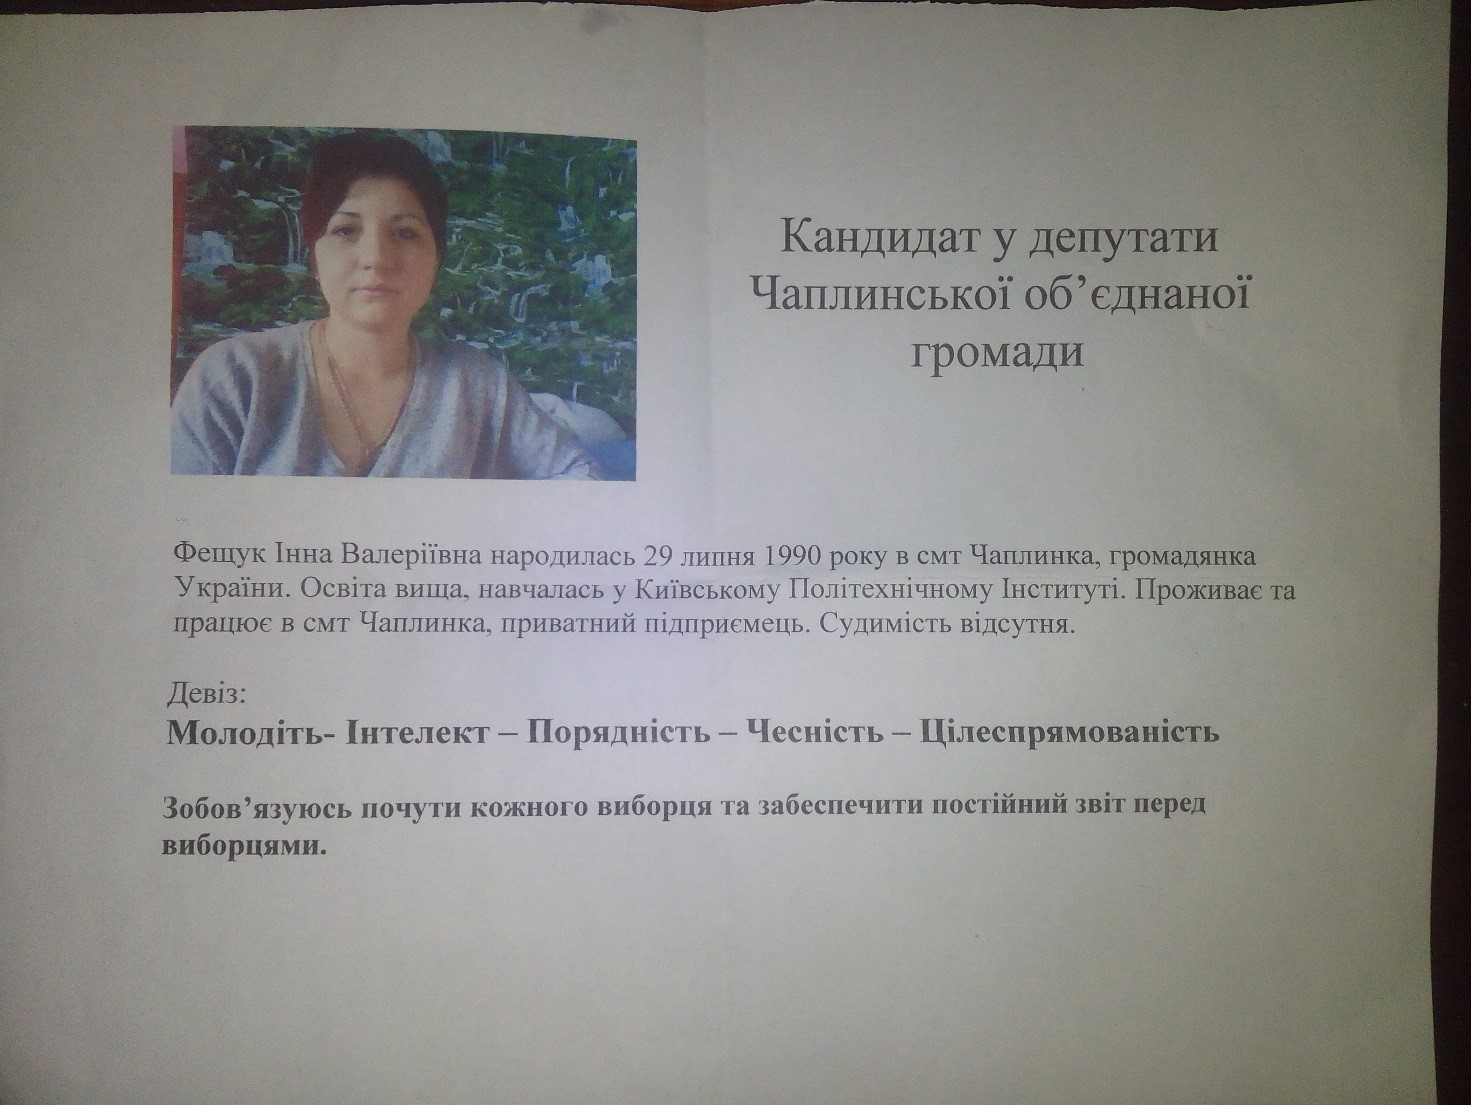 Кандидат у депутати
Чаплинської об’єднаної
громади
Фещук Інна Валеріївна народилась 29 липня 1990 року в смт Чаплинка, громадянка
України. Освіта вища, навчалась у Київському Політехнічному Інституті. Проживає та
працює в смт Чаплинка, приватний підприємець. Судимість відсутня.
Девіз:
Молодіть- Інтелект – Порядність – Чесність – Цілеспрямованість
Зобов’язуюсь почути кожного виборця та забеспечити постійний звіт перед
виборцями.